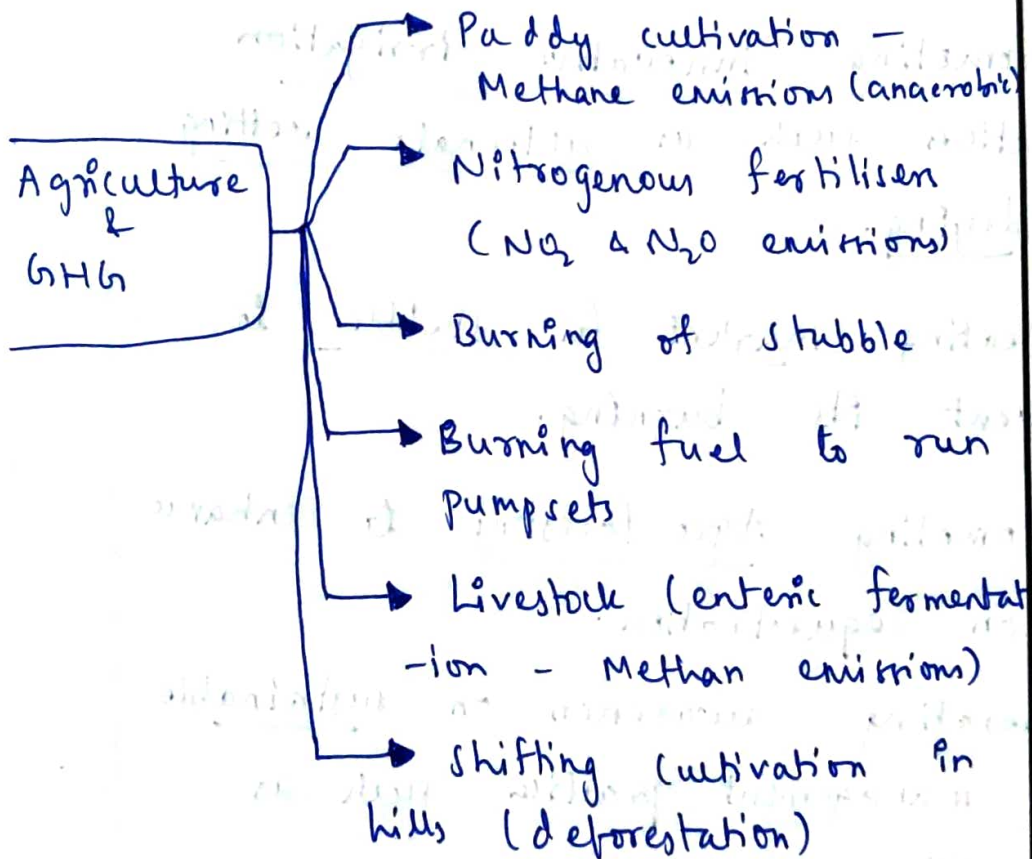 Agriculture
&
GHG
Paddy cultivation -
Methane emissions (anaerobic)
Nitrogenous fertilisers
(NO₂ & N₂O emissions)
Burning of stubble
Burning fuel to run
pumpsets
Livestock (enteric fermentat
-ion - Methan emissions)
Shifting cultivation in
hills (deforestation)